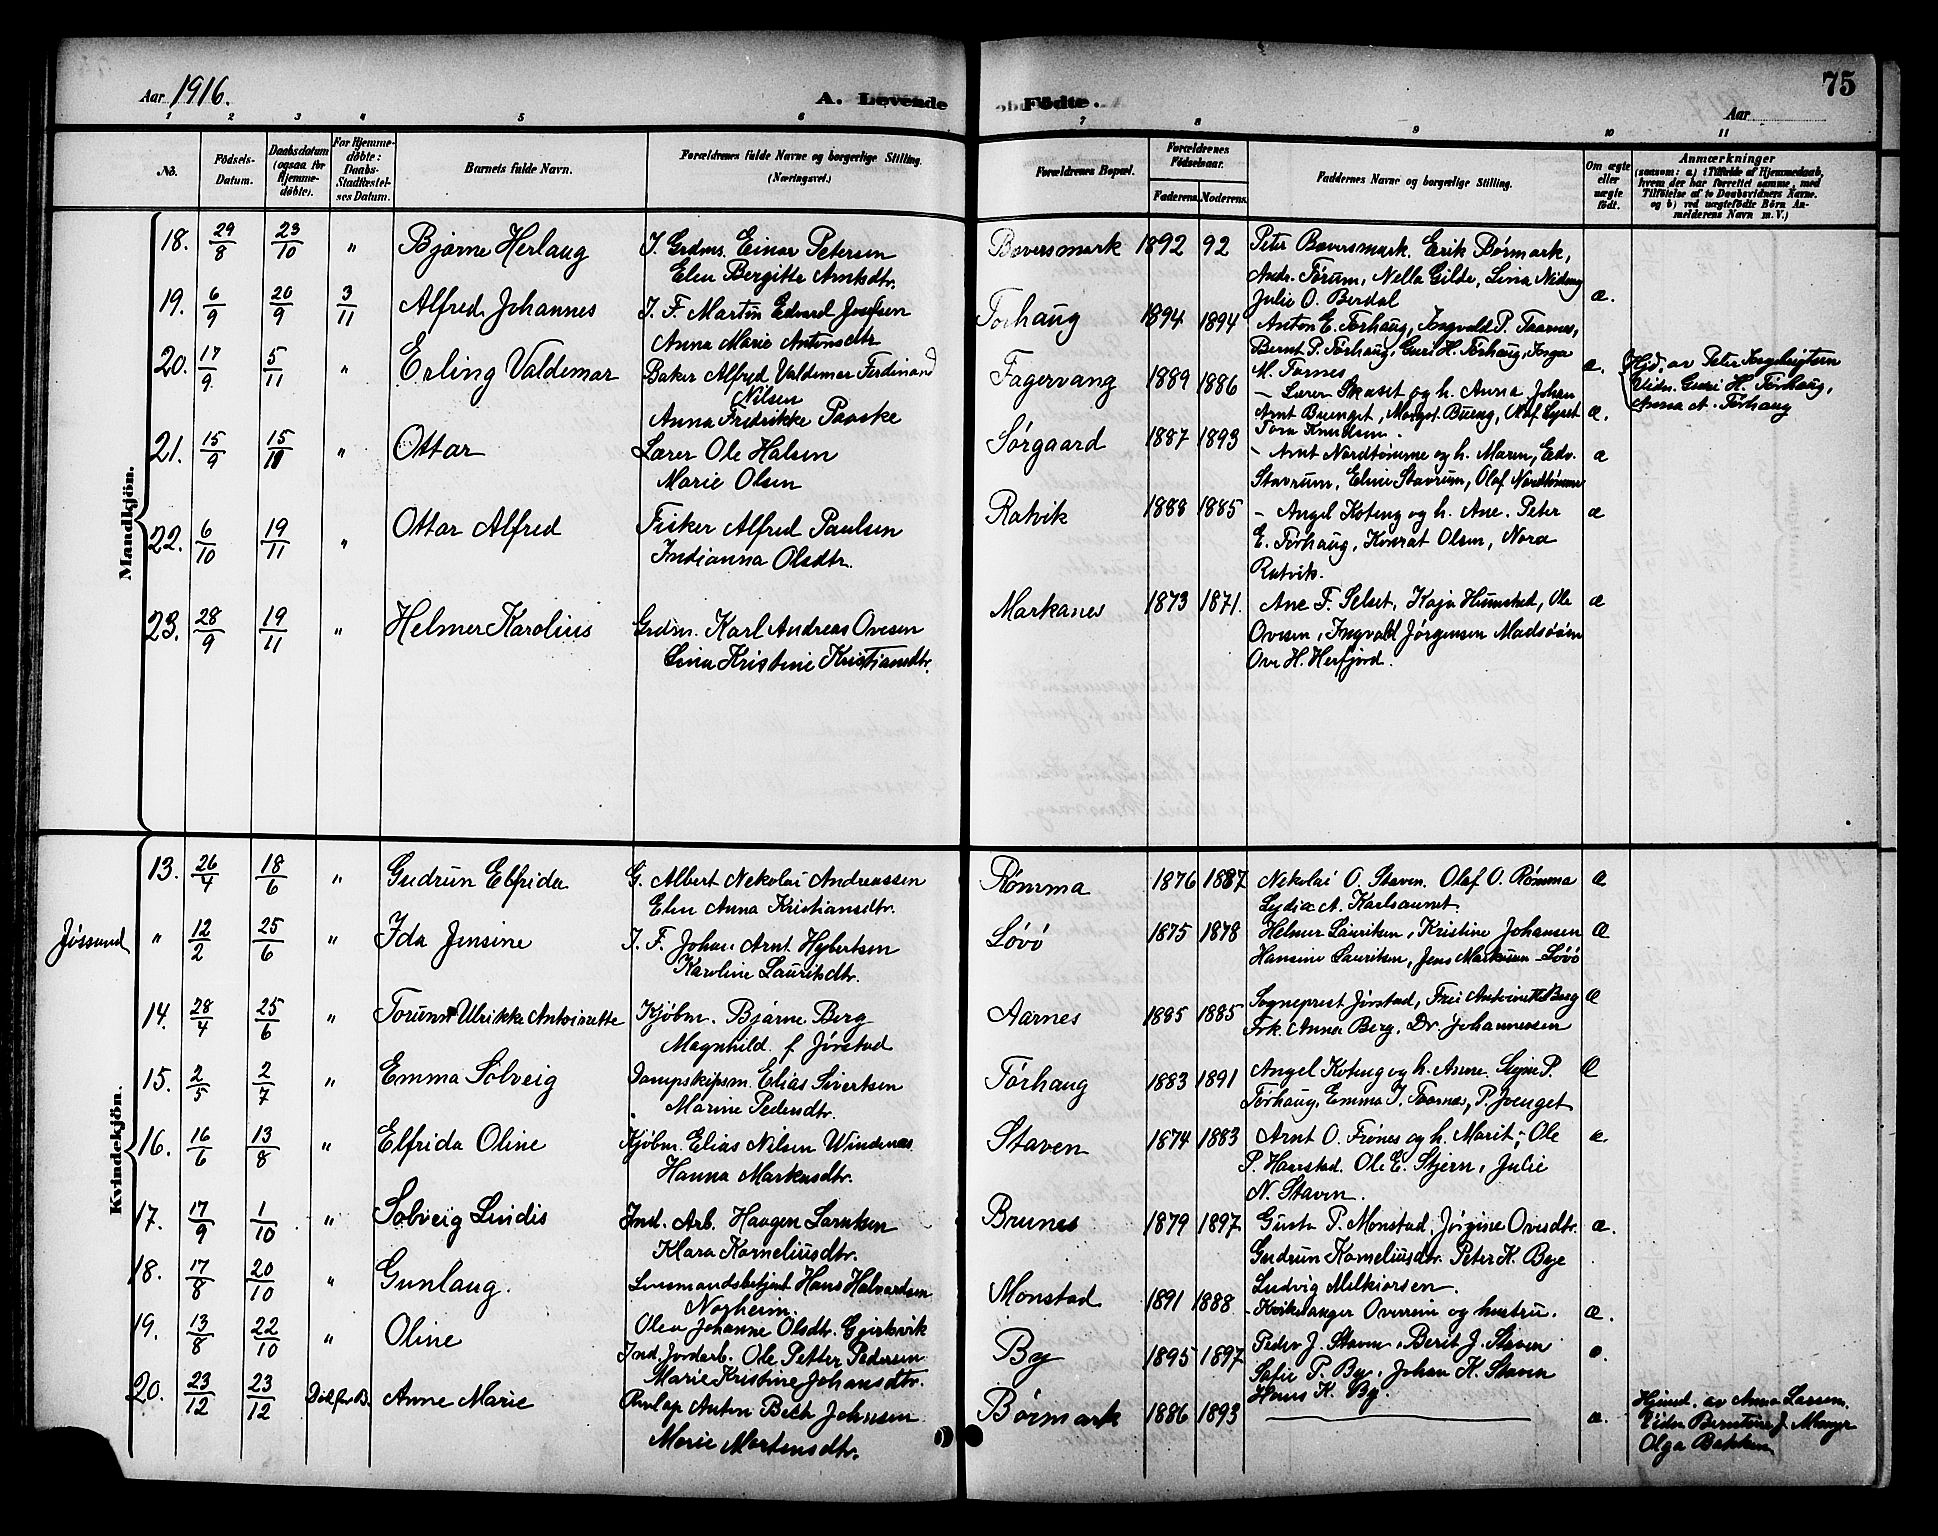 Aar 1916.
A. Levende Födte.
Aar
75
1 2 3 4 5 6 7 8 9 10 11
No.
Födsels-Datum.
Daabsdatum (ogsaa for Hjemme-döbte).
For Hjemme-döbte: Daabs-Stadfæstel-ses Datum.
Barnets fulde Navn.
Forældrenes fulde Navne og borgerlige Stilling. (Næringsvei.)
Forældrenes Bopæl.
Forældrenes Födselsaar.
Faderens. Moderens.
Faddernes Navne og borgerlige Stilling.
Om ægte eller uægte födt.
Anmærkninger
(saasom: a) i Tilfælde af Hjemmedaab, hvem der har forrettet samme, med Tilföielse af to Daabsvidners Navne, og b) ved uægtefödte Börn An-melderens Navn m. V.)
Mandkjön.
18. 29/8 23/10 " Bjarne Herlaug
J. Grdms. Einar Petersen
Elen Bergitte Arntsdtr.
Bøversmark 1892 92
Peter Bøversmark. Erik Børmark,
Andr. Tørum, Nella Gilde, Lina
Julie O. Berdal
19. 6/9 20/9 3/11 Alfred Johannes
J. F. Martin Edvard Josefsen
Anna Marie Antonsdtr
Torhaug 1894 1894 æ.
Anton E. Tørhaug, Ingvald P. Taarnes,
Bernt P. Tørhaug, Guri H. Tørhaug, Inga
M. Tørnes
Hjd. av Peter
Vidn. Guri H. Tørhaug,
Anna A. Tørhaug
20. 17/9 5/11 " Erling Valdemar
Baker Alfred Valdemar Ferdinand
Nilsen
Anna Fredrikke Paaske
Fagervang 1889 1886 æ.
- Lærer Skaset og h. Anna Johan
Arnt Buenget, Margot Bueng, Olaf Selset
Tora Knudsen.
21. 15/9 15/11 " Ottar
Lærer Ole Halsen
Marie Olsen
Sørgaard 1887 1893 æ
- Arnt Nordtømme og h. Maren, Edv.
Stavrum, Eline Stavrum, Olaf Nordtømme
22. 6/10 19/11 " Ottar Alfred
Fisker Alfred Paulsen
Indianna Olsdtr.
Ratvik 1888 1885 æ
- Angel Koteng og h. Ane. Peter
E. Tørhaug, Konrat Olsen, Nora
Ratvik.
23. 28/9 19/11 " Helmer Karolius
Grdm. Karl Andreas Ovesen
Lina Kristine Kristiansdtr.
Markanes 1873 1871. æ
Ane F. Selset, Kaja Humstad, Ole
Ovesen, Ingvald Jørgensen Madsøøen
Ove H. Herfjord.
Kvindekjön.
13. 26/4 18/6 " Gudrun Elfrida
G. Albert Nekolai Andreassen
Elen Anna Kristiansdtr.
Rømma 1876 1887 æ
Nekolai O. Staven. Olaf O. Rømma
Lydia A. Karlsaunet.
Jøssund
" 12/2 25/6 " Ida Jensine
J. F. Johan Arnt Hybertsen
Karoline Lauritsdtr.
Løvø 1875 1878 Æ
Helmer Lauritsen, Kristine Johansen
Hansine Lauritsen, Jens Markusen - Løvø
14. 28/4 25/6 " Torunn Ulrikke Antoinette
Kjøbm. Bjarne Berg
Magnhild f. Jørstad
Aarnes 1885 1885 Æ
Sogneprest Jørstad, Frk Antoinette Berg
Frk. Anna Berg, Dr. Johannessen
15. 2/5 2/7 " Emma Solveig
Dampskipsm. Elias Sivertsen
Marine Pedersdtr.
Tørhaug 1883 1891 Æ
Angel Koteng og h. Anne. Signe P.
Tørhaug, Emma J. Taarnes, P. Ivenget
16. 16/6 13/8 " Elfrida Oline
Kjøbm. Elias Nilsen Windenæs
Hanna Markusdtr.
Staven 1874 1883 æ.
Arnt O. Frønes og h. Marit; Ole
P. Harstad. Ole E. Stjern, Julie
N. Staven.
17. 17/9 1/10 " Solveig Lindis
Ind. Arb. Haagen Larntsen
Klara Korneliusdtr.
Brunes 1879 1897 æ.
Gusta P. Monstad, Jørgine Ovesdtr.
Gudrun Korneliusdtr. Peter K. Bye
Ludvig Melkiorsen.
18. 17/8 20/10 " Gunlaug.
Lensmandsbetjent Hans Halvardsen
Norheim.
Olea Johanne Olsdtr. Gjerkvik
Monstad 1891 1888 æ.
- Kvikstanger Overrein og hustru.
19. 13/8 22/10 " Oline
Ind. Jordarb. Ole Petter Pedersen
Marie Kristine Johansdtr.
By 1895 1897 o.
Peder J. Staven, Berit J. Staven
Sofie P. By, Johan K. Staven
Hans K. By.
20. 23/12 23/12 Død før B. Anne Marie
Anton Beck Johnsen
Marie Martensdtr.
Børmark 1886 1893 æ.
Hjemd. av Anna Lassen.
Vidn Berntine J.
Olga Bakken